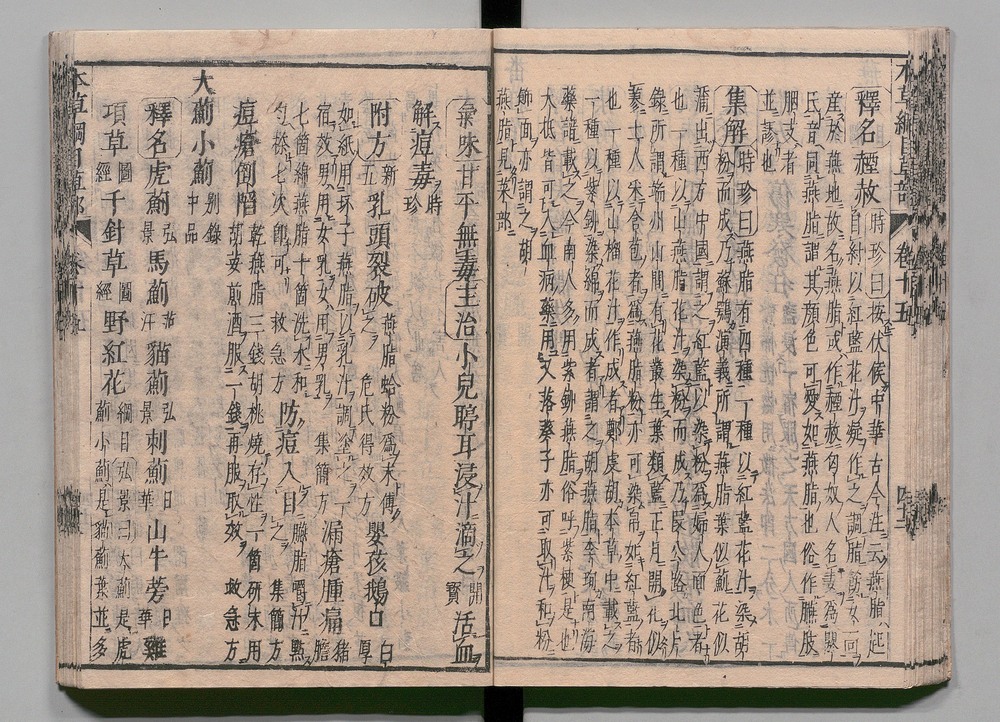 釋名𧹞赦時珍曰按伏候中華古今注云燕脂起
自紂以紅藍花汁凝作之調脂飾女面
產於燕地故名燕脂或作𧹞赦匈奴人名妻為閼
氏音同燕脂謂其顏色可愛如燕脂也俗作臙肢
胭支者
並謬也
集解時珍曰燕脂有四種一種以紅藍花汁染胡
粉而成乃蘇鶚演義所謂燕脂葉似薊花似
蒲出西方中國謂之紅藍以染粉為婦人面色者
也一種以山燕脂花汁染粉而成乃段公路北戶
錄所謂端州山間有花叢生葉類藍正月開花似
蓼土人采含苞者為燕脂粉亦可染帛如紅藍者
也一種以山榴花汁作成者鄭虔胡本草中載之
一種以紫鉚染綿而成者謂之胡燕脂李珣南海
藥譜載之今南人多用紫鉚燕脂俗呼紫梗是也
大抵皆可入血病藥用又落葵子亦可取汁和粉
飾面亦謂之胡
燕脂見菜部
氣味甘平無毒主治小兒聤耳浸汁滴之開寶活血
解痘毒時珍
附方新五乳頭裂破燕脂蛤粉為末傅之危氏得效方嬰孩鵝口白厚
如紙用坏子燕脂以乳汁調塗之一
宿效男用女乳女用男乳集簡方漏瘡腫痛豬膽
七箇綿燕脂十箇洗水和
勻搽七次即可救急方防痘入目臙脂嚼汁點之集簡方
痘瘡倒陷乾燕脂三錢胡桃燒存性一箇研末用
胡荽煎酒服一錢再服取效救急方
大薊小薊別錄中品
釋名虎薊弘景馬薊范汪貓薊弘景刺薊日華山牛蒡日華雞
項草圖經千針草圖經野紅花綱目弘景曰大薊是虎
薊小薊是貓薊葉並多